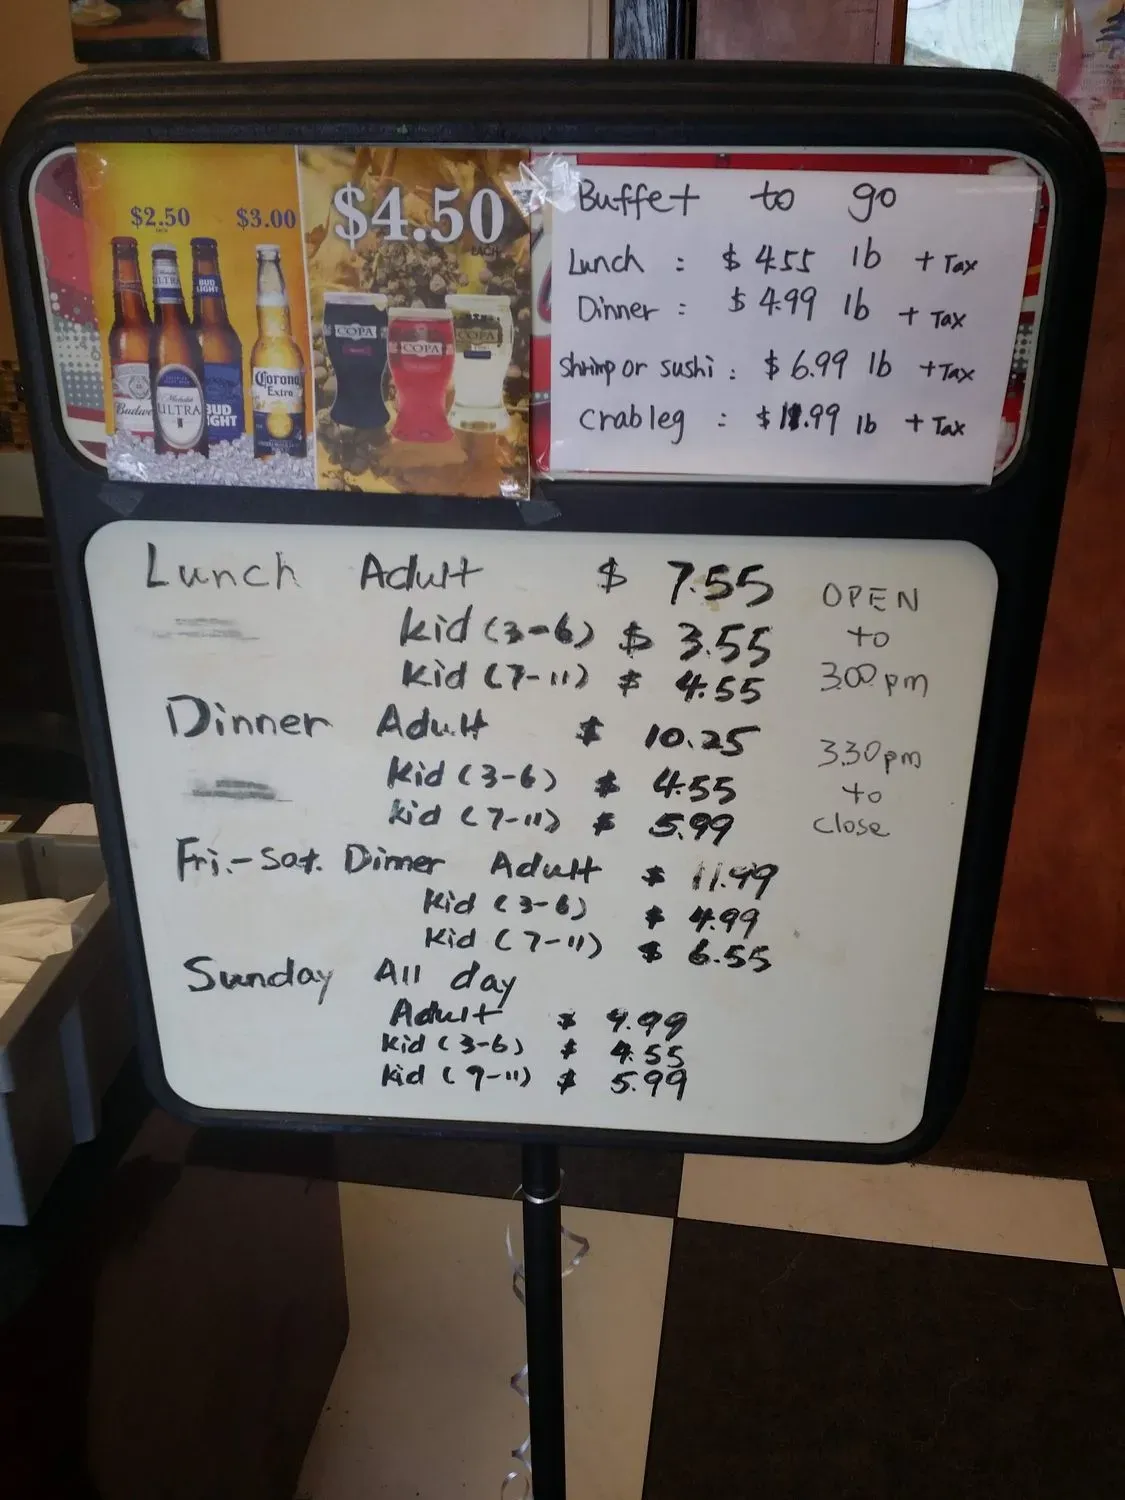 $2.50
EACH
$3.00
Budweiser
Michelob
ULTRA
BUD
LIGHT
BUD
LIGHT
Corona
Extra
$4.50
EACH
COPA
COPA
COPA
Buffet to go
Lunch : $ 4.55 lb + Tax
Dinner : $ 4.99 lb + Tax
Shrimp or sushi : $ 6.99 lb + Tax
Crab leg : $ 11.99 lb + Tax
Lunch Adult $ 7.55
kid (3-6) $ 3.55
kid (7-11) $ 4.55
OPEN
to
3:00 pm
Dinner Adult $ 10.25
kid (3-6) $ 4.55
kid (7-11) $ 5.99
3:30pm
to
close
Fri.-Sat. Dinner Adult $ 11.99
kid (3-6) $ 4.99
kid (7-11) $ 6.55
Sunday All day
Adult $ 9.99
kid (3-6) $ 4.55
kid (7-11) $ 5.99